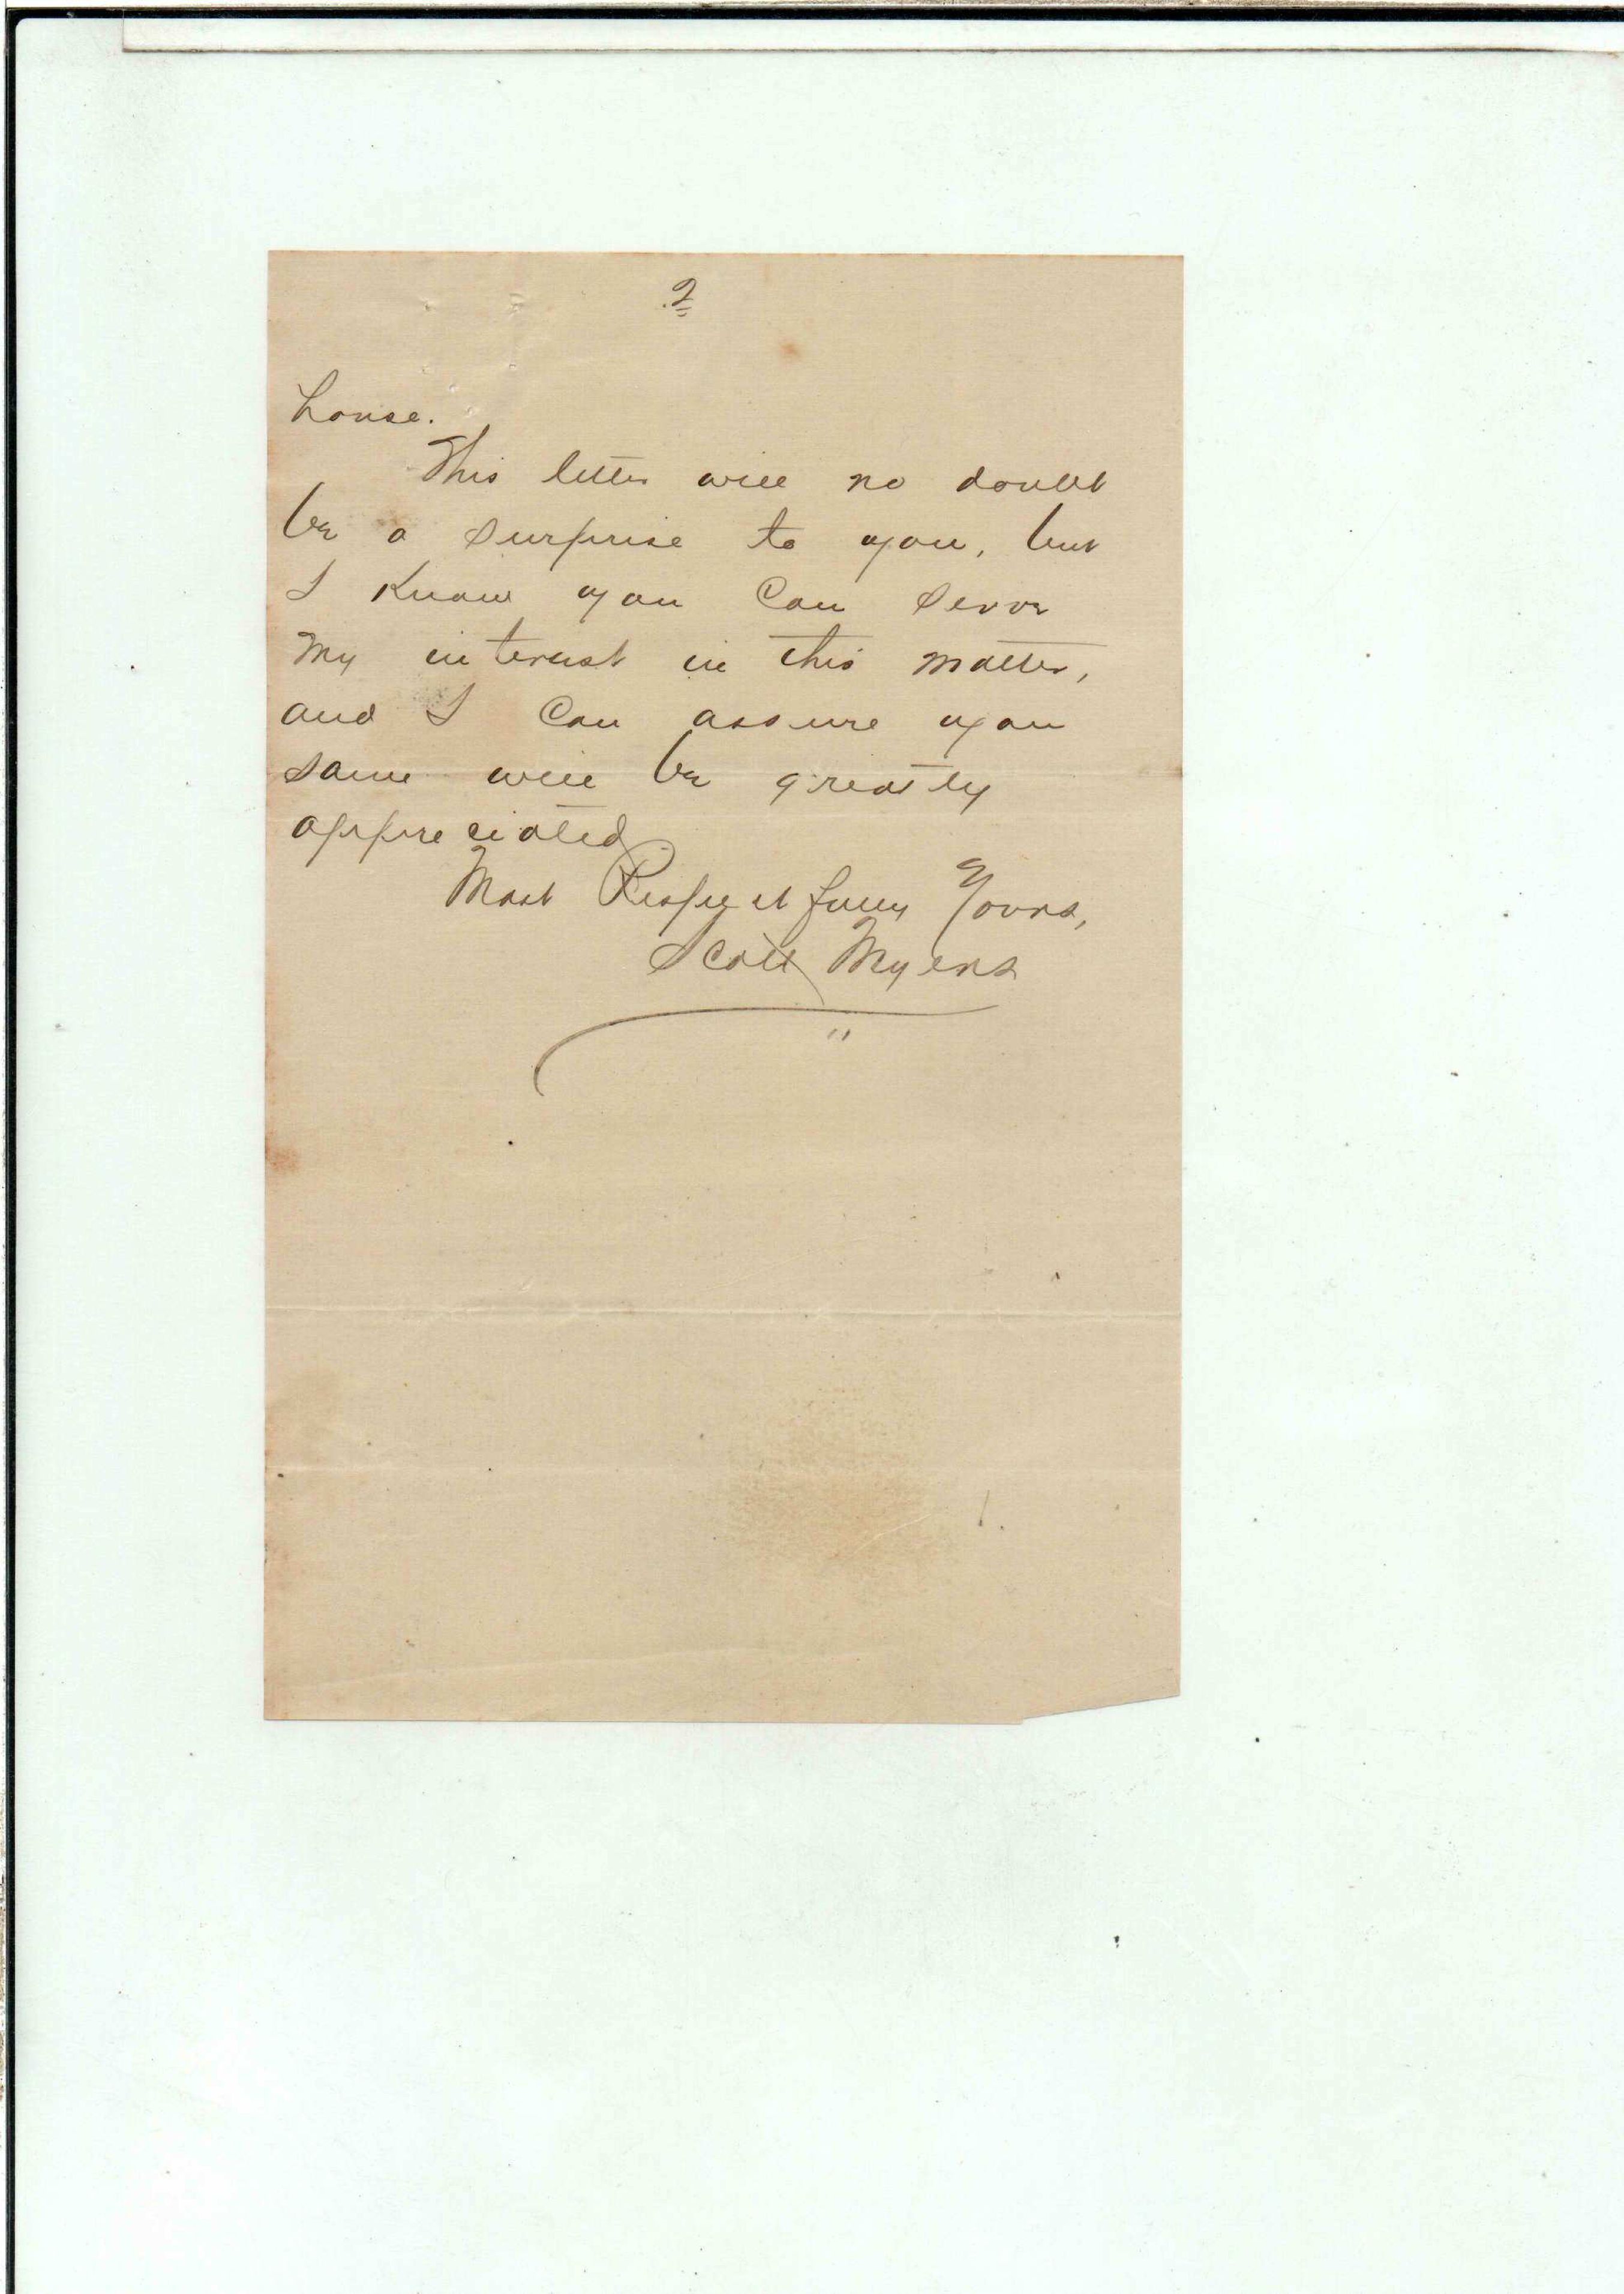 2
house.
This letter will no doubt
be a surprise to you, but
I know you can serve
my interest in this matter,
and I can assure you
same will be greatly
appreciated.
Most Respectfully Yours,
Scott Myers